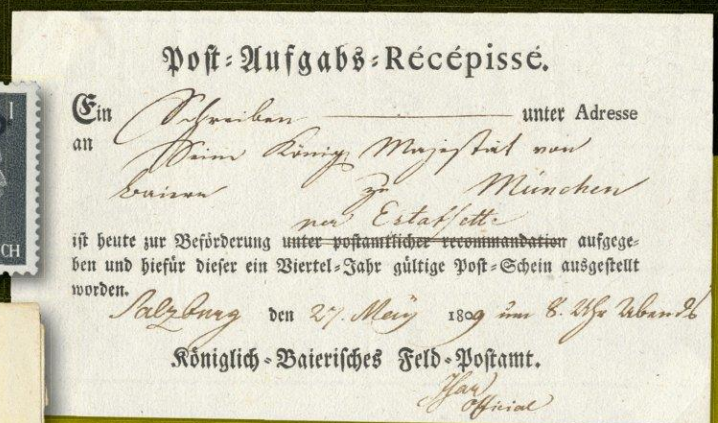 Post-Aufgabs-Récépissé.
Ein Schreiben unter Adresse
an Seine König. Majestät von
Baiern zu München
per Estaffette
ist heute zur Beförderung unter postamtlicher recommandation aufgege-
ben und hiefür dieser ein Viertel-Jahr gültige Post-Schein ausgestellt
worden.
Salzburg den 27. May 1809 um 8. Uhr Abends
Königlich-Baierisches Feld-Postamt.
Official
CH